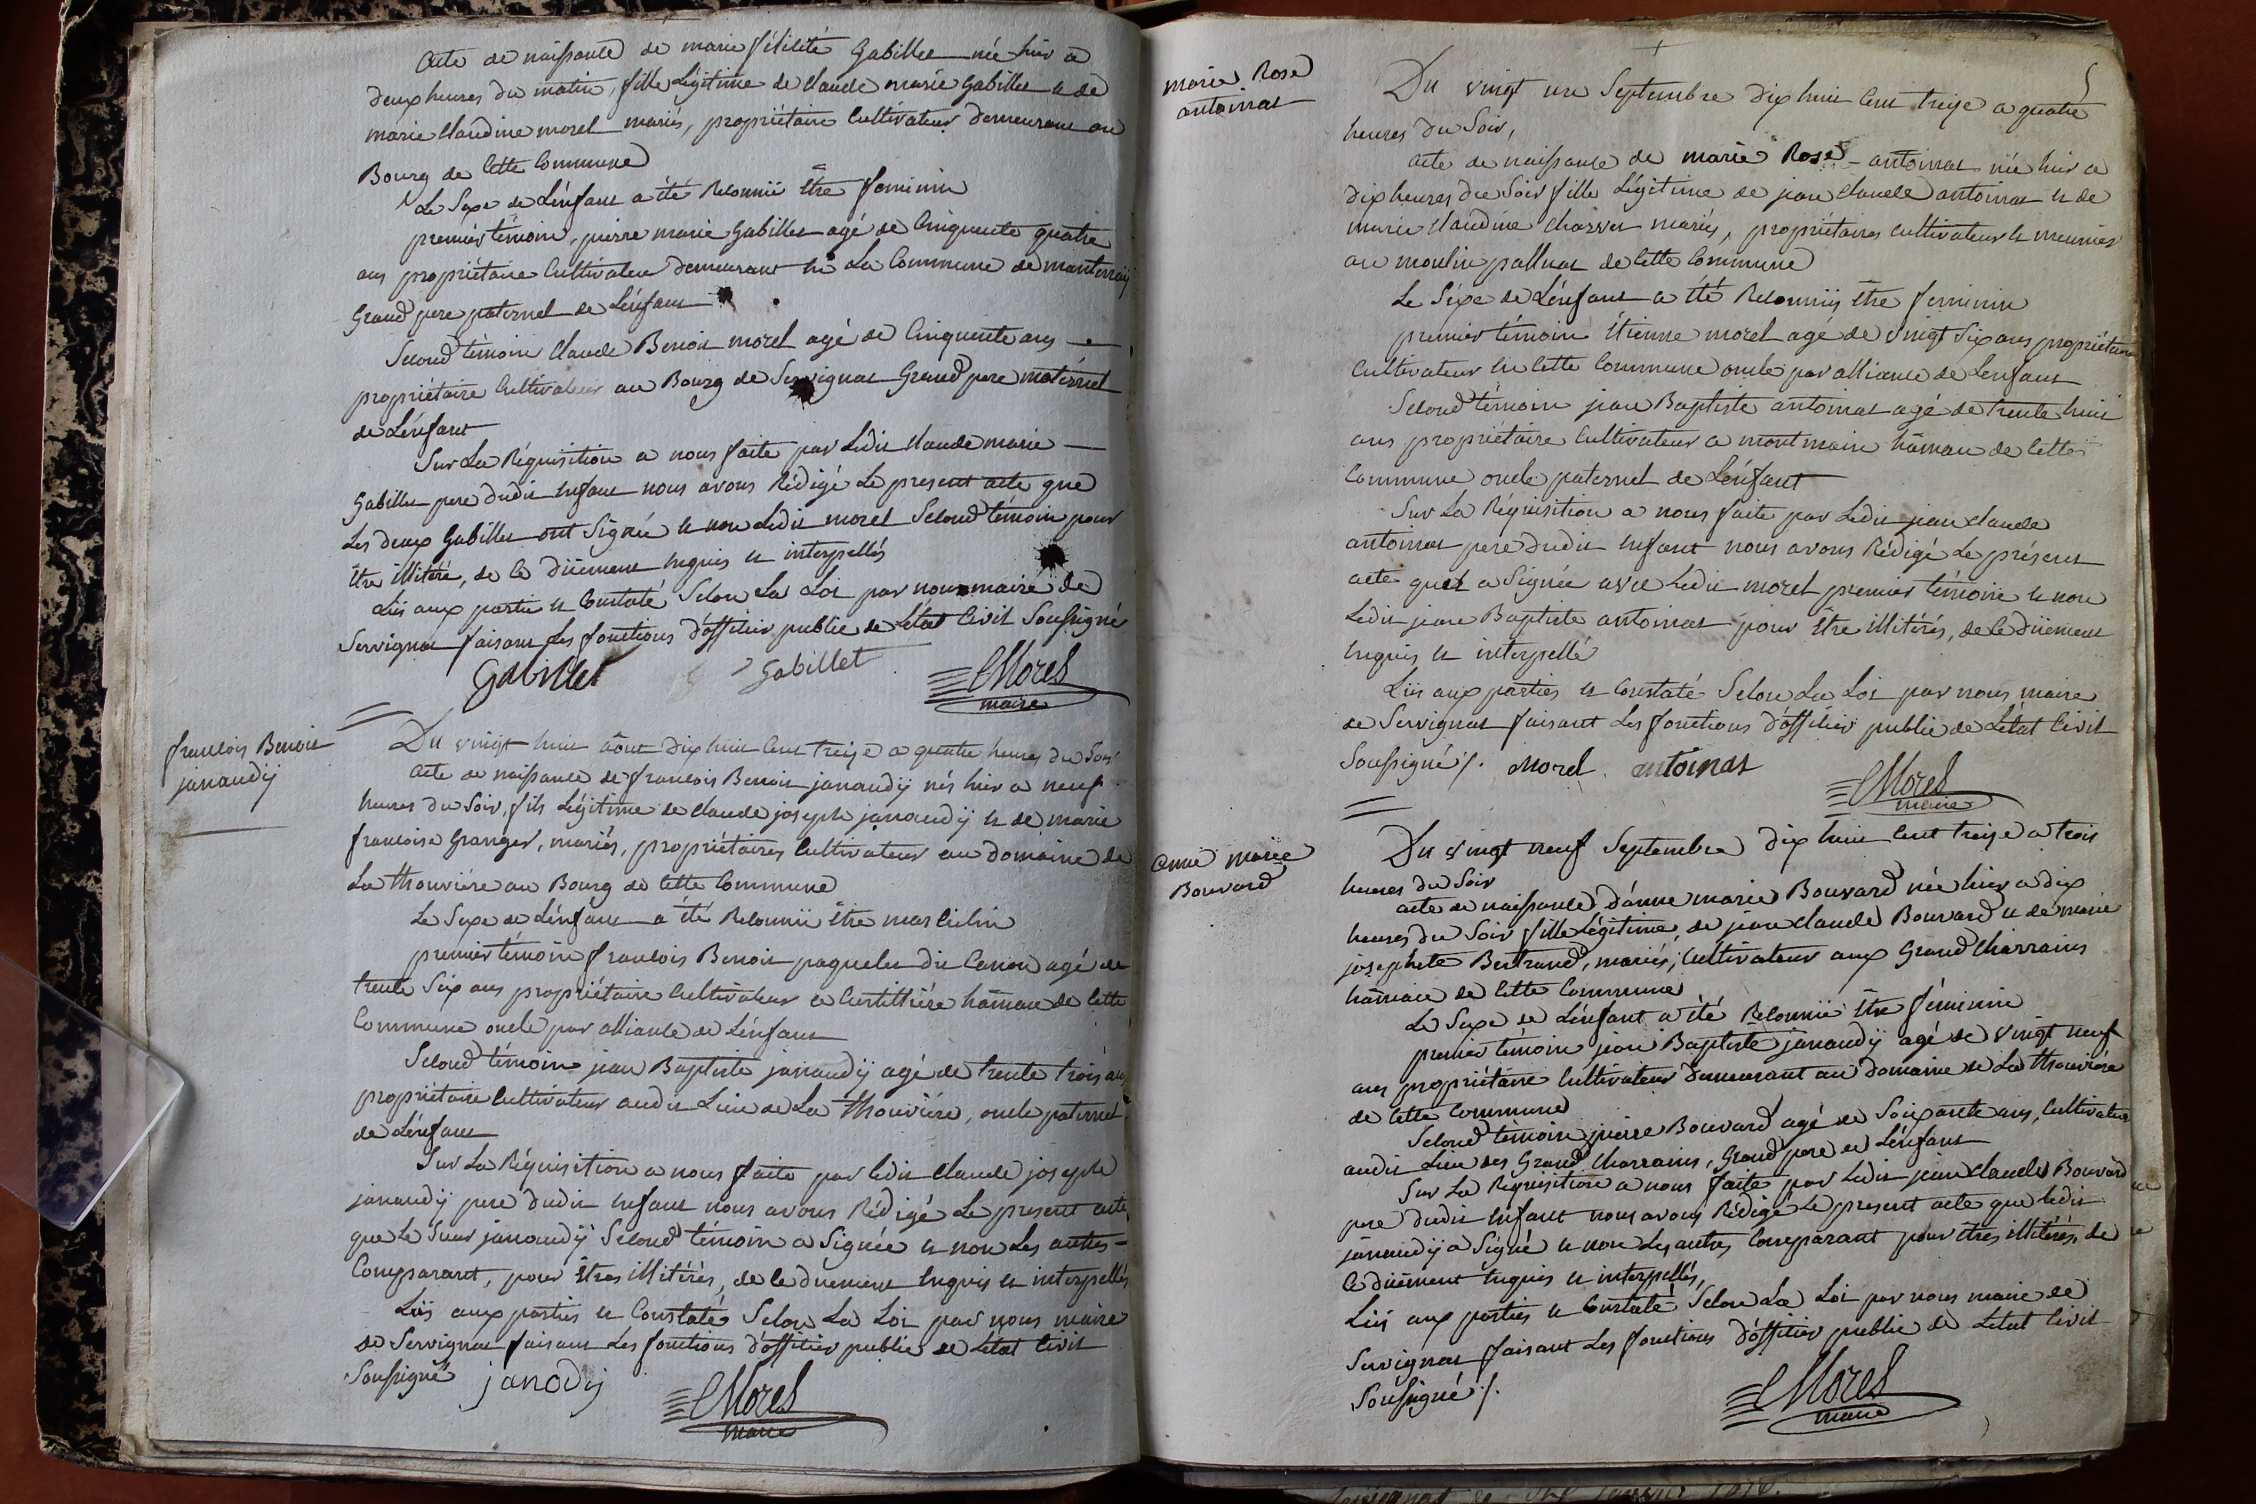 Acte de naissance de marie félicité Gabillet née hier a
deux heures du matin, fille Légitime de claude marie Gabillet et de
marie claudine morel mariés, propriétaire Cultivateur demeurant au
Bourg de Cette Commune
Le Sexe de L'énfant a été Reconnü être feminin
premier témoin, pierre marie Gabillet agé de Cinquente quatre
ans propriétaire Cultivateur demeurant en La Commune de
Grand pere paternel de L'énfant
Second témoin Claude Benoit morel agé de Cinquente ans
propriétaire Cultivateur au Bourg de Servignat Grand pere maternel
de L'énfant
Sur La Réquisition a nous faite par Ledit claude marie
Gabillet pere dudit enfant nous avons Rédigé Le present acte que
Les deux Gabillet ont Signée et non Ledit morel Second témoin pour
être illitéré, de ce düement enquis et interpellés
Lüs aux partie et Constaté Selon La Loi par nous maire de
Servignat faisant Les fonctions d'officier public de L'état Civil Soussigné
Gabillet Gabillet CMorel
maire
francois Benoit
janaudÿ
Du vingt huit août dix huit Cent treize a quatre heures du Soir
Acte de naissance de francois Benoit janaudÿ nés hier a neuf
heures du Soir, fils Légitime de claude joseph janaudÿ et de marie
francoise Granger, mariés, propriétaires Cultivateur au domaine de
La thouviére au Bourg de Cette Commune
Le Sexe de L'énfant a été Reconnü être masculin
premier témoin francois Benoit paquelet dit Canon agé de
trente Six ans propriétaire Cultivateur a hâmau de Cette
Commune oncle par alliance de L'énfant
Second témoin jean Baptiste janaudÿ agé de trente trois ans
propriétaire Cultivateur audit Lieu de La thouviére, oncle paternel
de L'énfant
Sur La Réquisition a nous faite par ledit claude joseph
janaudÿ pere dudit enfant nous avons Rédigé Le present acte
que Le Sieur janaudÿ Second témoin a Signée et non Les autres
Comparant, pour êtres illitérés, de ce duement enquis et interpellés
Lüs aux parties et Constaté Selon La Loi par nous maire
de Servignat faisant Les fonctions d'officier public de L'état Civil
Soussigné janody CMorel
maire
marie Rose
antoinat
Du vingt un Septembre dix huit Cent treize a quatre
heures du Soir,
acte de naissance de marie Rose antoinat née hier a
dix heures du Soir fille Légitime de jean claude antoinat et de
marie claudine charvet mariés, propriétaires cultivateur et meunier
au moulin palluat de Cette Commune
Le Sexe de L'énfant a été Reconnüs être feminin
premier témoin étienne morel agé de vingt Six ans propriétaire
Cultivateur en Cette Commune oncle par alliance de L'énfant
Second témoin jean Baptiste antoinat agé de trente huit
ans propriétaire Cultivateur a montmain hâmau de Cette
Commune oncle paternel de L'énfant
Sur La Réquisition a nous faite par Ledit jean claude
antoinat pere dudit enfant nous avons Rédigé Le présent
acte quil a Signée avec Ledit morel premier témoin et non
Ledit jean Baptiste antoinat pour être illitérés, de ce düement
enquis et interpellé
Lüs aux parties et Constaté Selon La Loi par nous maire
de Servignat faisant Les fonctions d'officier public de L'état Civil
Soussigné ⁒. Morel antoinat CMorel
maire
anne marie
Bouvard
Du vingt neuf Septembre dix huit Cent treize a trois
heures du Soir
acte de naissance d'anne marie Bouvard née hier a dix
heures du Soir fille Légitime, de jean claude Bouvard et de marie
josephete Bertrand, mariés, Cultivateur aux Grand Charrains
hâmaie de Cette Commune
Le Sexe de L'énfant a été Reconnü être féminin
premier témoin jean Baptiste janaudÿ agé de vingt neuf
ans propriétaire Cultivateur demeurant au domaine de La thouviére
de Cette Commune
Second témoin pierre Bouvard agé de Soixante ans, Cultivateur
audit Lieu des Grand Charrains, Grand pere de L'énfant
Sur La Réquisition a nous faite par Ledit jean claude Bouvard
pere dudit enfant nous avons Rédigé Le present acte que Ledit
janaudÿ a Signé et non Les autres Comparant pour êtres illitérés, de
ce düement enquis et interpellés,
Lüs aux parties et Constaté Selon La Loi par nous maire de
Servignat faisant Les fonctions d'officier public de L'état Civil
Soussigné ⁒. CMorel
maire